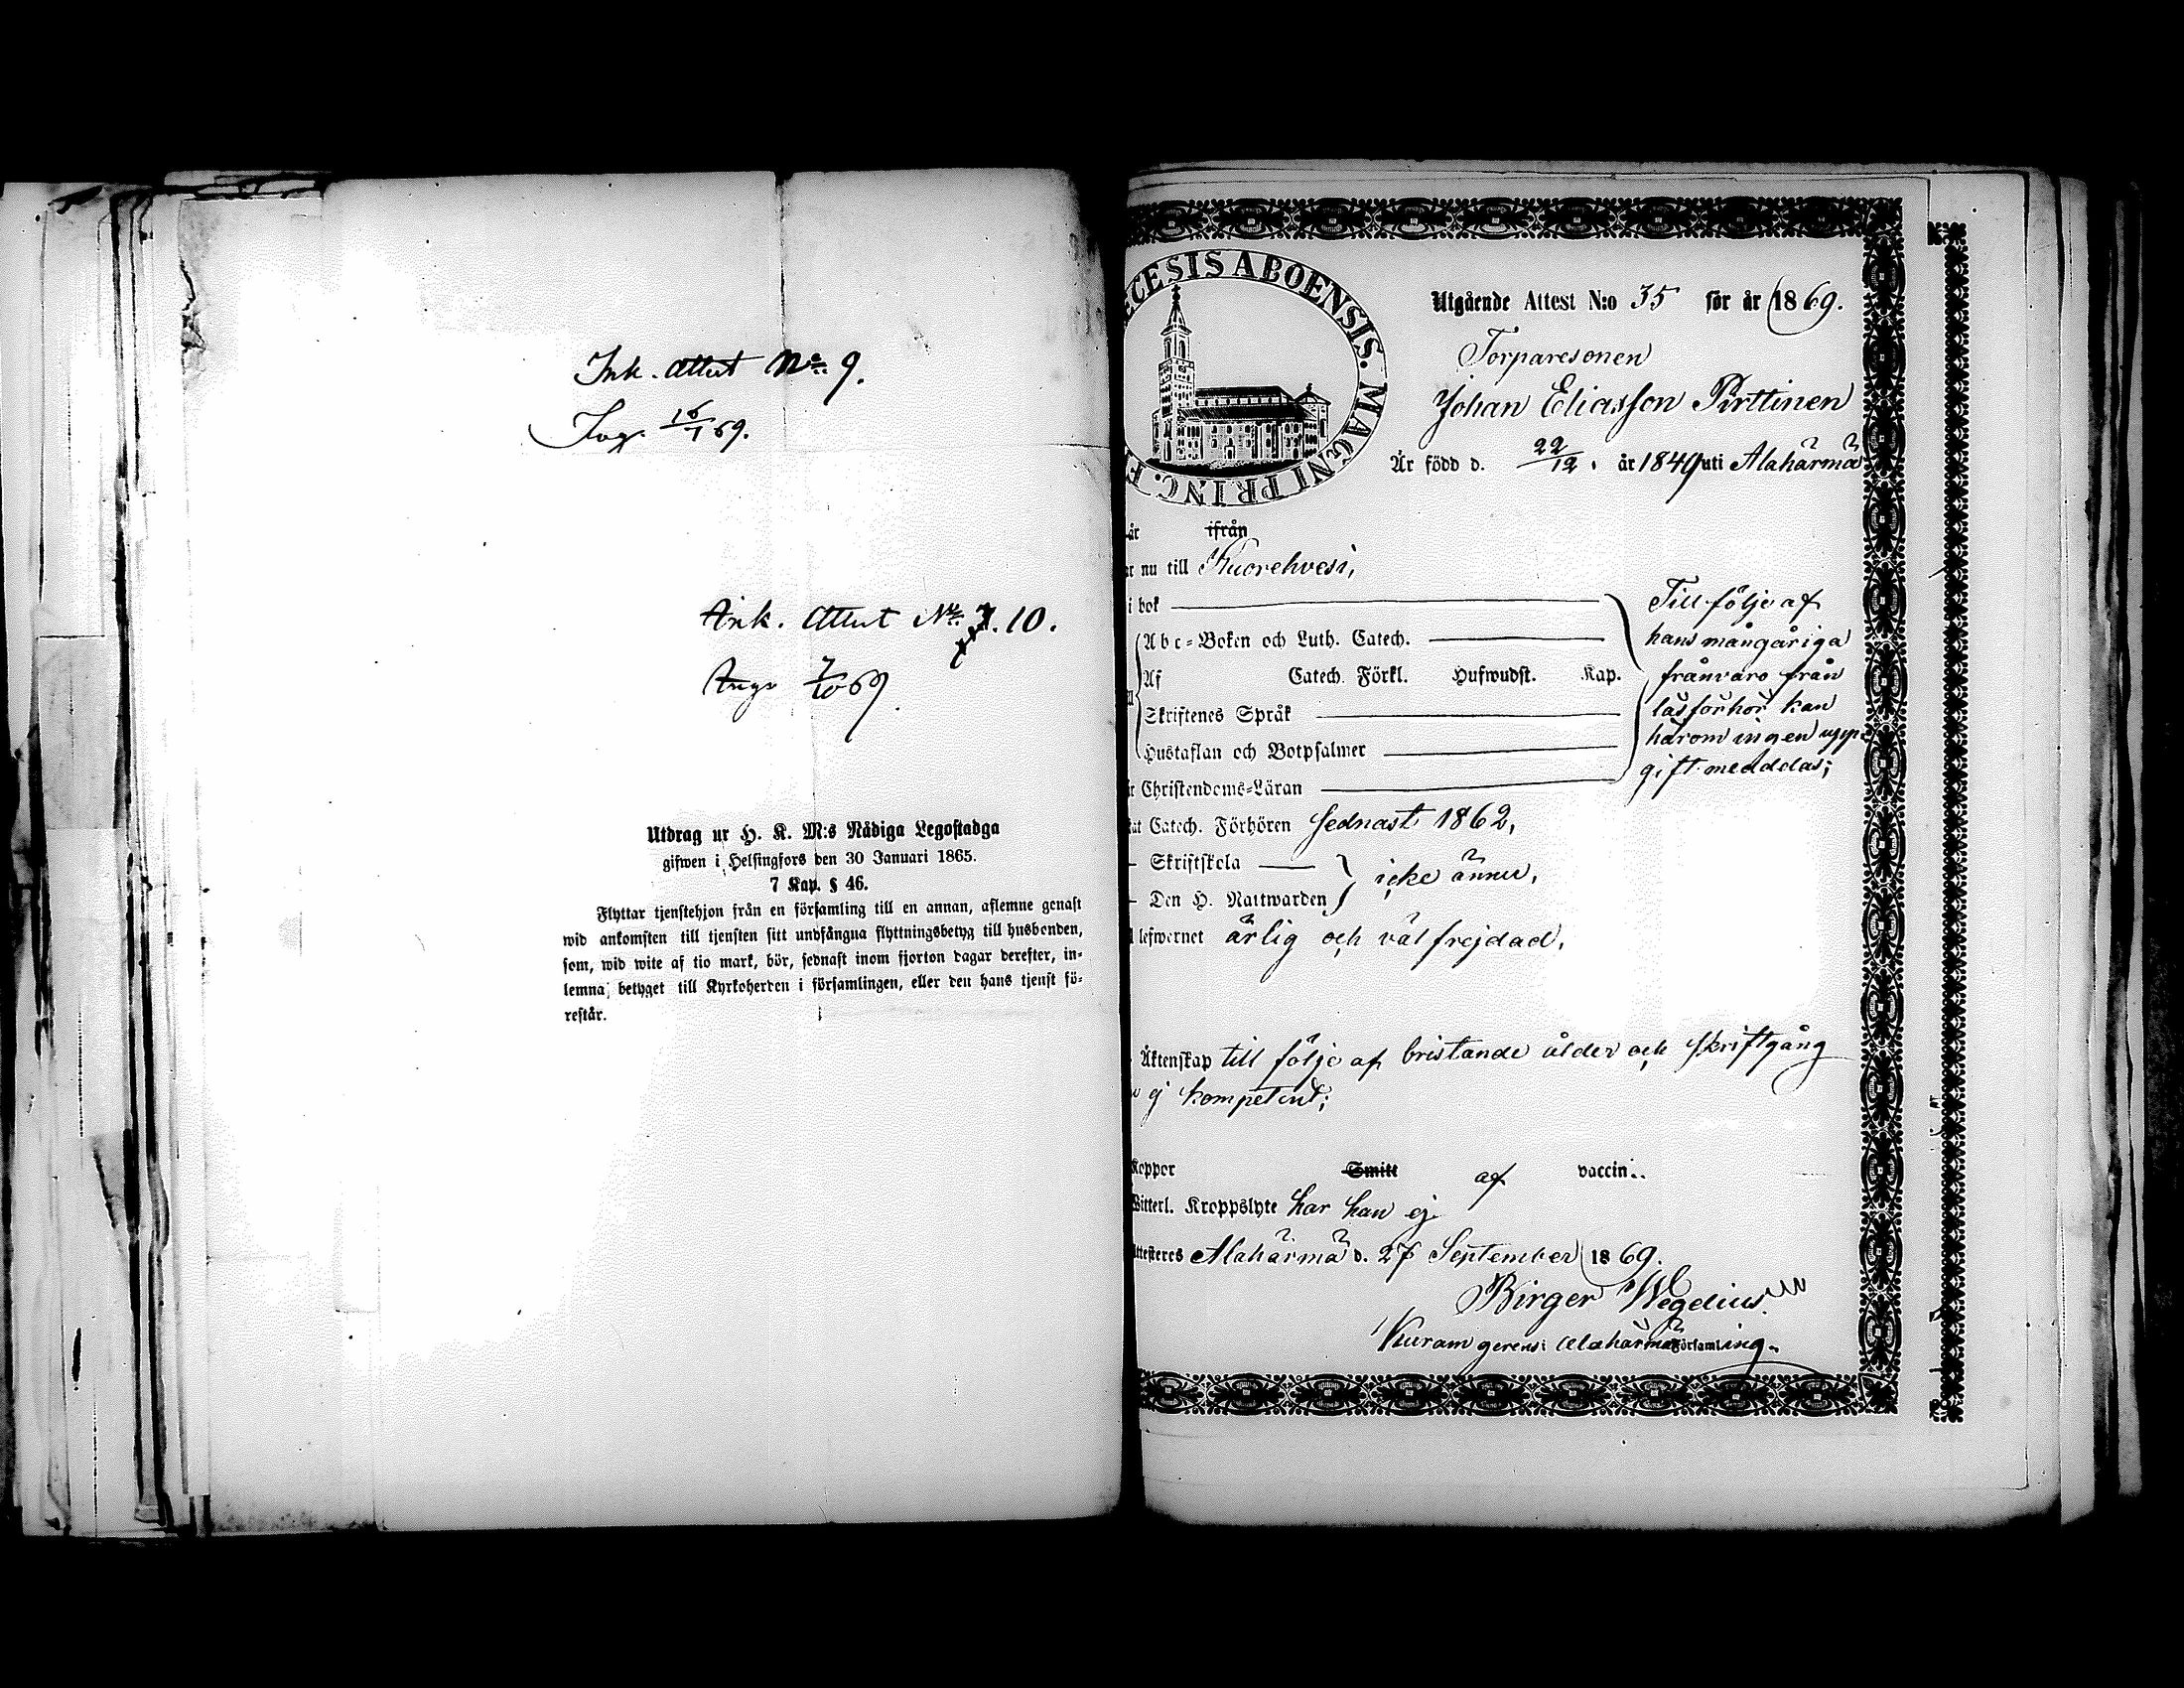 Ink. Attest No. 9.
16/1 69.
Ank. Attest No. 10.
7/10 69.
Utdrag ur H. K. M:s Nådiga Legostadga
gifwen i Helsingfors den 30 Januari 1865.
7 Kap. § 46.
Flyttar tjenstehjon från en församling till en annan, aflemne genast
wid ankomsten till tjensten sitt undfångna flyttningsbetyg till husbonden,
som, wid wite af tio mark, bör, sednast inom fjorton dagar derefter, in-
lemna betyget till Kyrkoherden i församlingen, eller den hans tjenst fö-
restår.
CESIS ABOENSIS. MAGNI PRINC. F
Utgående Attest N:o 35 för år 1869.
Torparesonen
Johan Eliasson Pirttinen
Är född d. 22/12. år 1849 uti Alahärmä
år ifrån
nu till Kuorehvesi,
i bok
Abc-Boken och Luth. Catech.
Af Catech. Förkl. Hufwudst. Kap.
Skriftenes Språk
Hustaflan och Botpsalmer
Christendoms-Läran
Till följe af
hans mångåriga
frånvaro från
läsförhör kan
härom ingen upp-
gift meddelas;
Catech. Förhören sednast 1862,
- Skriftskola
- Den H. Nattwarden
icke ännu,
lefwernet ärlig och väl frejdad,
Äktenskap till följe af bristande ålder och skriftgång
ej kompetent;
Koppor Smitt af vaccin..
Witterl. Kroppslyte har han ej
Attesteres Alahärmä d. 27 September 1869.
Birger Wegelius
Kuram gerens i Alahärmä Församling.